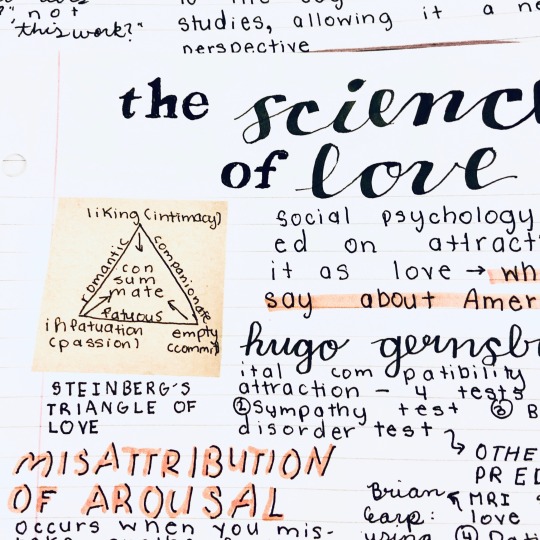 ?" not
"this work?"
to
studies, allowing it a
perspective
the scienc
of love
liking (intimacy)
romantic
companionate
con
sum
mate
fatuous
infatuation
(passion)
empty
(commit
STEINBERG'S
TRIANGLE OF
LOVE
social psychology
ed on attract
it as love → wh
say about Amer
hugo gernsb
ital compatibility
attraction - 4 tests
①Sympathy test ③ B
disorder test
OTHE
PRED
MRI
love
Brian
Earp:
using ④
MISATTRIBUTION
OF AROUSAL
occurs when you mis-